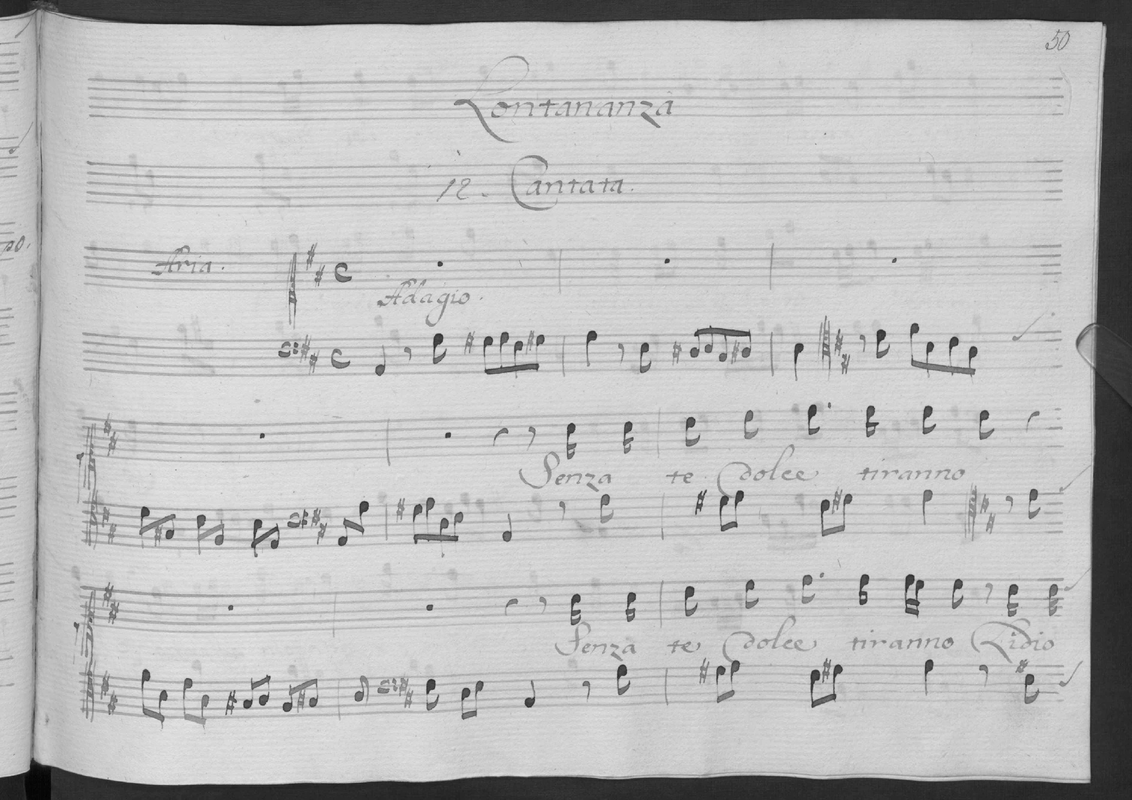 50
Lontananza
12. Cantata.
Aria.
Adagio.
Senza te dolce tiranno
Senza te dolce tiranno Lidio